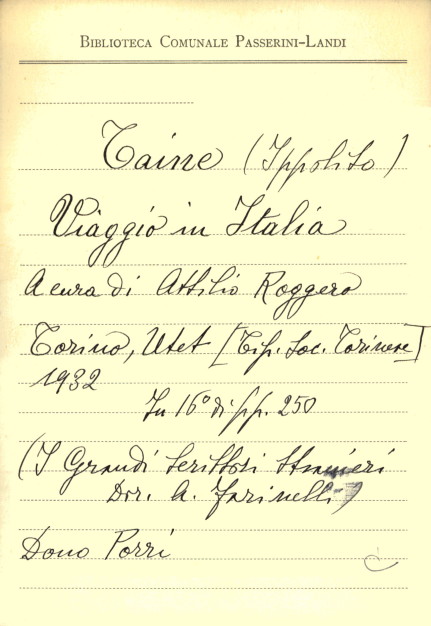 BIBLIOTECA COMUNALE PASSERINI-LANDI
Taine (Ippolito)
Viaggio in Italia
A cura di Attilio Roggero
Torino, Utet [Tip. Soc. Torinese]
1932
In 16° di pp. 250
(I Grandi Scrittori Stranieri
Dir. A. Farinelli)
Dono Porri